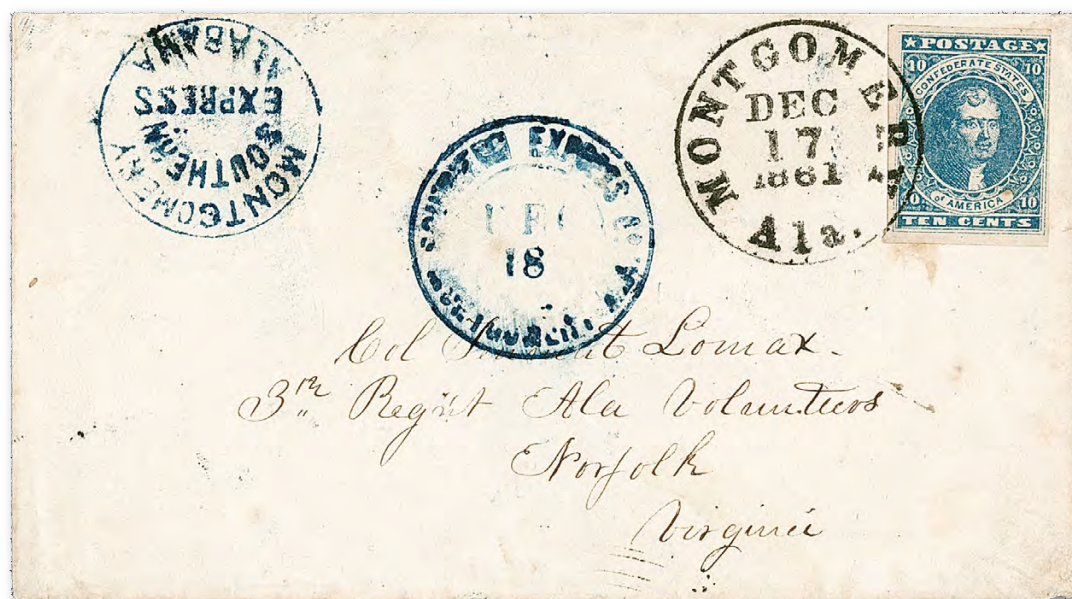 MONTGOMERY
SOUTHERN
EXPRESS
ALABAMA
SOUTHERN EXPRESS Co.
DEC
18
MONTGOMERY
DEC
17
1861
Ala.
★POSTAGE★
10 10
CONFEDERATE STATES
of AMERICA
10 10
TEN CENTS
Col Lomax.
3rd Regmt Ala Volunteers
Norfolk
Virginia